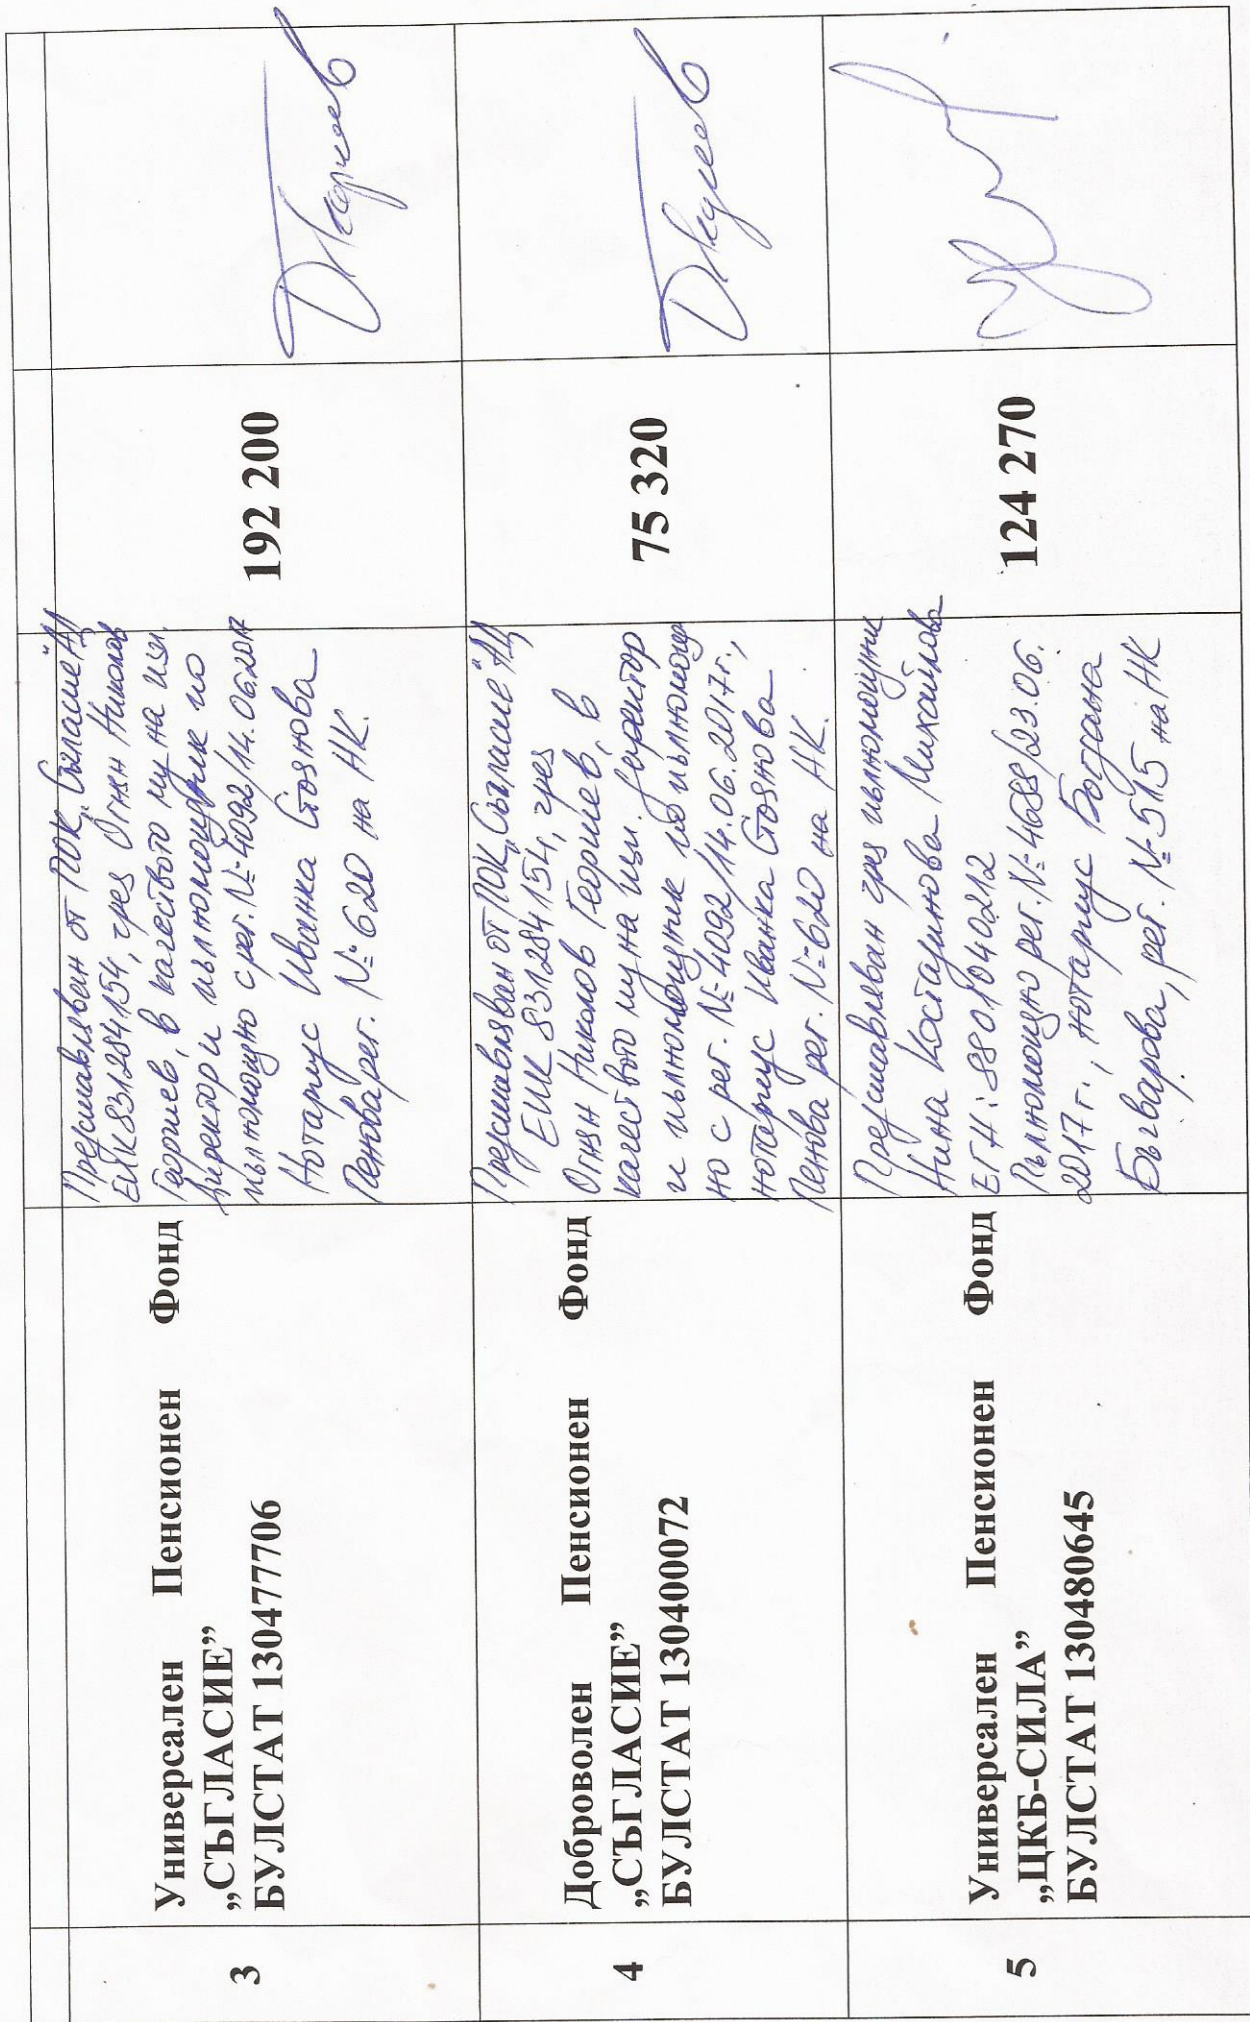 3
Универсален Пенсионен Фонд
„СЪГЛАСИЕ”
БУЛСТАТ 130477706
Представляван от ПОК „Съгласие" АД
ЕИК 831284154, чрез Огнян Николов
Георгиев, в качеството му на изп.
директор и пълномощник по
пълномощно с рег. №: 4092/14.06.2017
Нотариус Иванка Стоянова
Пенова рег. №: 620 на НК.
192 200
4
Доброволен Пенсионен Фонд
„СЪГЛАСИЕ”
БУЛСТАТ 130400072
Представляван от ПОК „Съгласие" АД
ЕИК 831284154, чрез
Огнян Николов Георгиев, в
качеството му на изп. директор
и пълномощник по пълномощ
но с рег. №: 4092/14.06.2017г.,
нотариус Иванка Стоянова
Пенова рег. №: 620 на НК.
75 320
5
Универсален Пенсионен Фонд
„ЦКБ-СИЛА”
БУЛСТАТ 130480645
Представляван чрез пълномощник
Нина Костадинова Михайлова
ЕГН: 8801040212
Пълномощно рег. №: 4688/23.06.
2017 г., нотариус Богдана
рег. №: 515 на НК
124 270